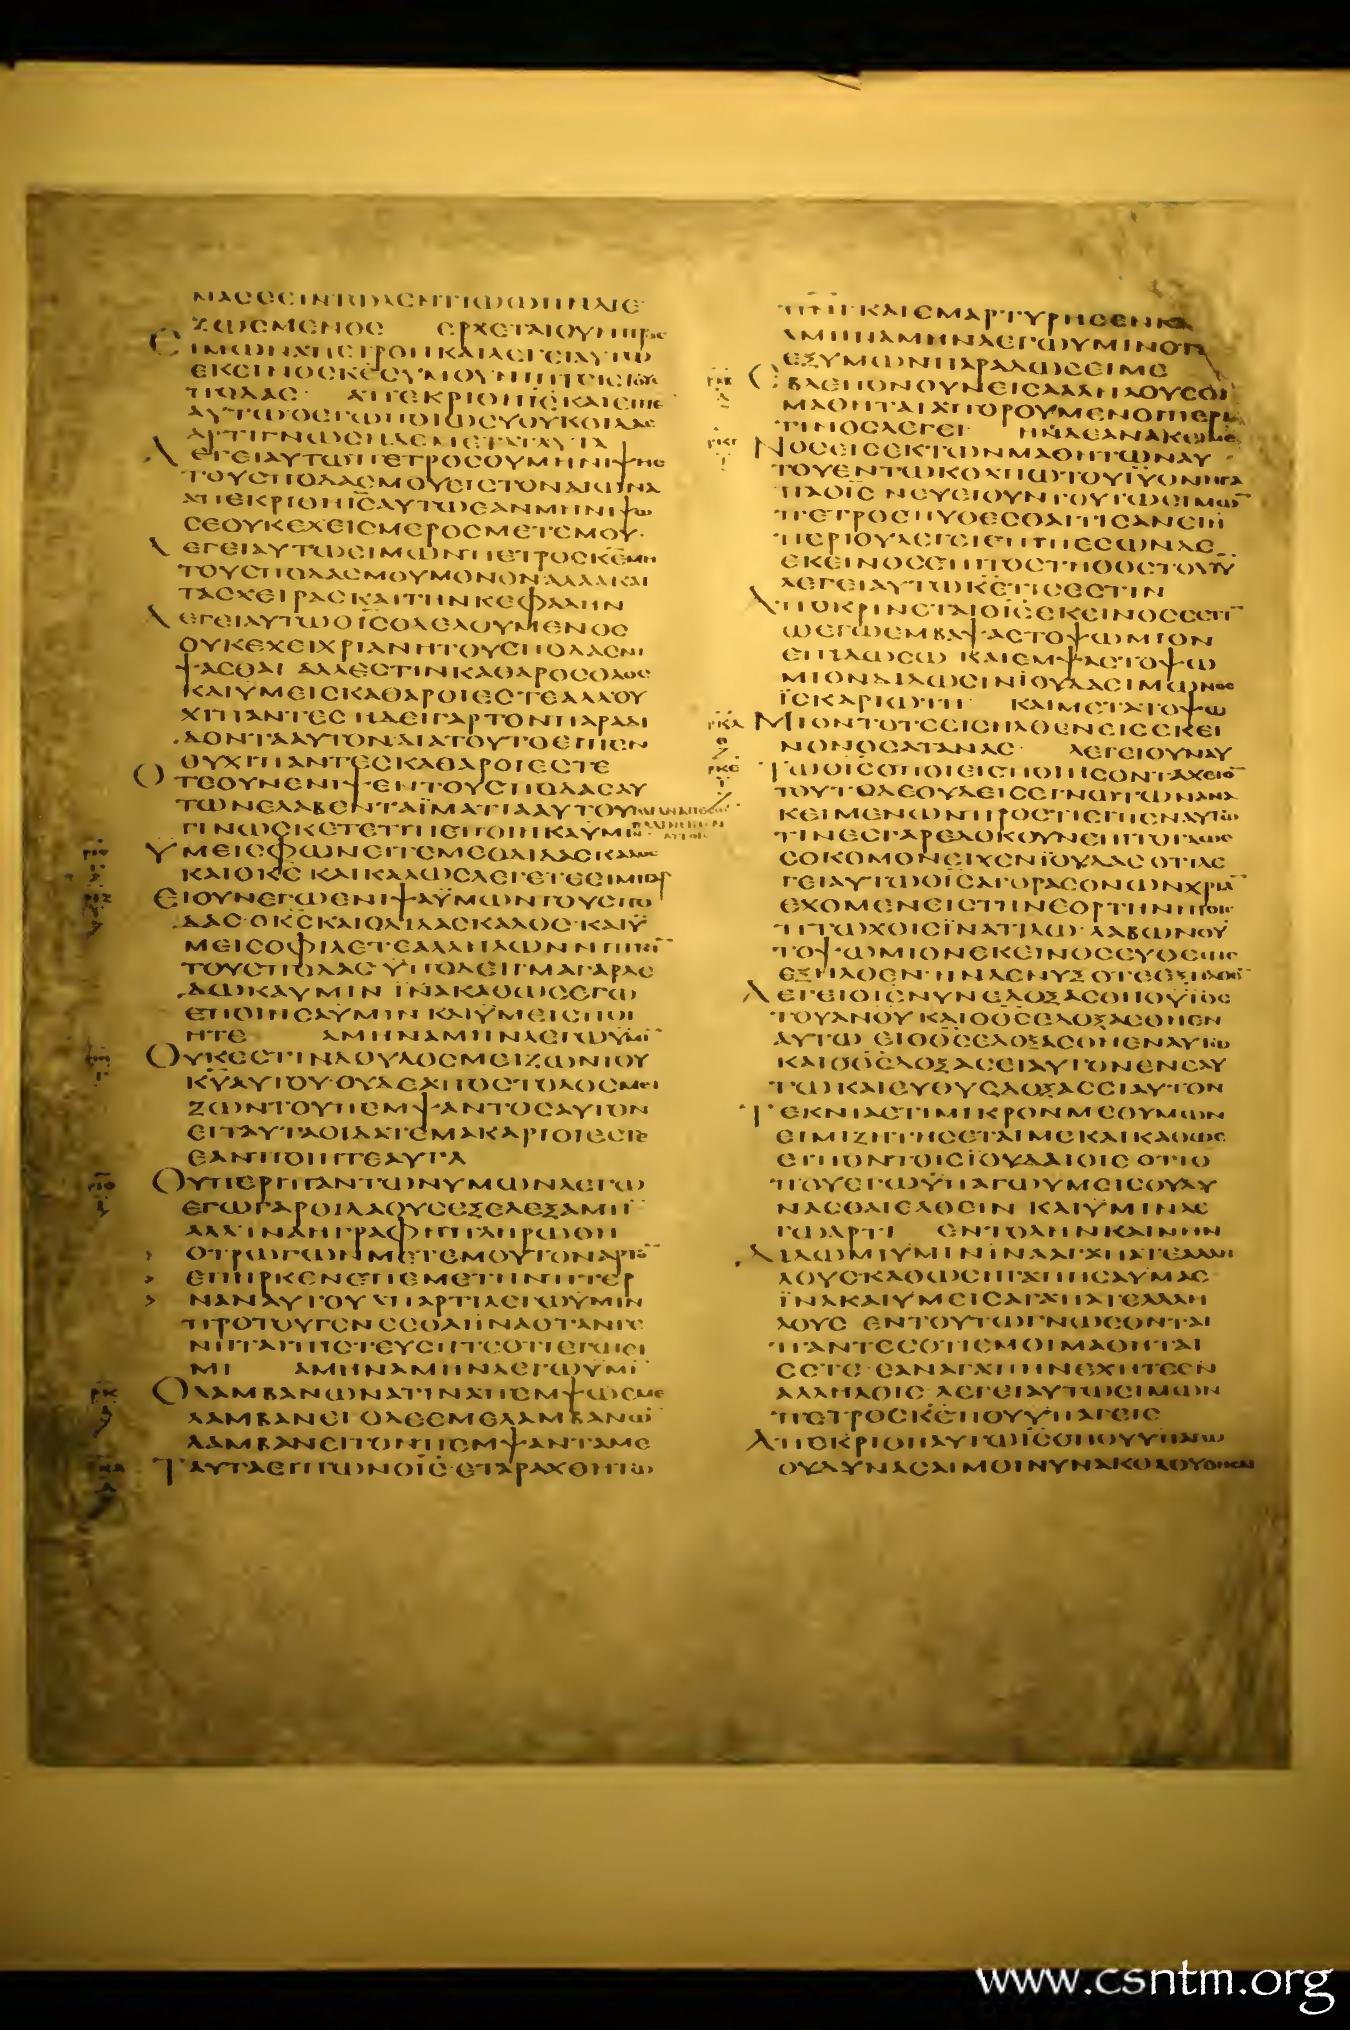 ΜΑССΕΙΝΤШΛΕΝΤΙШШΗΝΔΙΕ
ΖШСΜΕΝΟС ΕΡΧΕΤΑΙΟΥΝΠΡΟС
СΙΜШΝΑΠΕΤΡΟΝΚΑΙΛΕΓΕΙΑΥΤШ
ΕΚΕΙΝΟСΚΕСΥΜΟΥΝΙΠΤΕΙСΤΟΥС
ΠΟΔΑС ΑΠΕΚΡΙΘΗΙСΚΑΙΕΙΠΕ
ΑΥΤШΟΕΓШΠΟΙШСΥΟΥΚΟΙΔΑС
ΑΡΤΙΓΝШСΗΔΕΜΕΤΑΤΑΥΤΑ
ΛΕΓΕΙΑΥΤШΠΕΤΡΟСΟΥΜΗΝΙΨΗС
ΤΟΥСΠΟΔΑСΜΟΥΕΙСΤΟΝΑΙШΝΑ
ΑΠΕΚΡΙΘΗΙСΑΥΤШΕΑΝΜΗΝΙΨШ
СΕΟΥΚΕΧΕΙСΜΕΡΟСΜΕΤΕΜΟΥ
ΛΕΓΕΙΑΥΤШСΙΜШΝΠΕΤΡΟСΚΕΜΗ
ΤΟΥСΠΟΔΑСΜΟΥΜΟΝΟΝΑΛΛΑΚΑΙ
ΤΑСΧΕΙΡΑСΚΑΙΤΗΝΚΕΦΑΛΗΝ
ΛΕΓΕΙΑΥΤШΟΙСΟΛΕΛΟΥΜΕΝΟС
ΟΥΚΕΧΕΙΧΡΙΑΝΗΤΟΥСΠΟΔΑСΝΙ
ΨΑСΘΑΙ ΑΛΛΕСΤΙΝΚΑΘΑΡΟСΟΛΟС
ΚΑΙΥΜΕΙСΚΑΘΑΡΟΙΕСΤΕΑΛΛΟΥ
ΧΙΠΑΝΤΕС ΗΔΕΙΓΑΡΤΟΝΠΑΡΑΔΙ
ΔΟΝΤΑΑΥΤΟΝΔΙΑΤΟΥΤΟΕΙΠΕΝ
ΟΥΧΙΠΑΝΤΕСΚΑΘΑΡΟΙΕСΤΕ
ΟΤΕΟΥΝΕΝΙΨΕΝΤΟΥСΠΟΔΑСΑΥ
ΤШΝΕΛΑΒΕΝΤΑΪΜΑΤΙΑΑΥΤΟΥ
ΓΙΝШСΚΕΤΕΤΙΠΕΠΟΙΗΚΑΥΜΙΝ
ΥΜΕΙСΦШΝΕΙΤΕΜΕΟΔΙΔΑСΚΑΛΟС
ΚΑΙΟΚС ΚΑΙΚΑΛШСΛΕΓΕΤΕΕΙΜΙΓΑΡ
ΕΙΟΥΝΕΓШΕΝΙΨΑΫΜШΝΤΟΥСΠΟ
ΔΑС ΟΚСΚΑΙΟΔΙΔΑСΚΑΛΟС ΚΑΙΫ
ΜΕΙСΟΦΙΛΕΤΕΑΛΛΗΛШΝΝΙΠΤΙ¯
ΤΟΥСΠΟΔΑС ΫΠΟΔΕΙΓΜΑΓΑΡΔΕ
ΔШΚΑΥΜΙΝ ΪΝΑΚΑΘШСΕΓШ
ΕΠΟΙΗСΑΥΜΙΝ ΚΑΙΫΜΕΙСΠΟΙ
ΗΤΕ ΑΜΗΝΑΜΗΝΛΕΓШΥΜΙ¯
ΟΥΚΕСΤΙΝΔΟΥΛΟСΜΕΙΖШΝΤΟΥ
ΚΥΑΥΤΟΥ ΟΥΔΕΑΠΟСΤΟΛΟСΜΕΙ
ΖШΝΤΟΥΠΕΜΨΑΝΤΟСΑΥΤΟΝ
ΕΙΤΑΥΤΑΟΙΔΑΤΕΜΑΚΑΡΙΟΙΕСΤΕ
ΕΑΝΠΟΙΗΤΕΑΥΤΑ
ΟΥΠΕΡΙΠΑΝΤШΝΥΜШΝΛΕΓШ
ΕΓШΓΑΡΟΙΔΑΟΥСΕΞΕΛΕΞΑΜΗ¯
ΑΛΛΙΝΑΗΓΡΑΦΗΠΛΗΡШΘΗ
ΟΤΡШΓШΝΜΕΤΕΜΟΥΤΟΝΑΡΤΟ¯
ΕΠΗΡΚΕΝΕΠΕΜΕΤΗΝΠΤΕΡ
ΝΑΝΑΥΤΟΥ ΑΠΑΡΤΙΛΕΓШΥΜΙΝ
ΠΡΟΤΟΥΓΕΝΕСΘΑΙΪΝΑΟΤΑΝΓΕ
ΝΗΤΑΙΠΙСΤΕΥСΗΤΕΟΤΙΕΓШΕΙ
ΜΙ ΑΜΗΝΑΜΗΝΛΕΓШΥΜΙ¯
ΟΛΑΜΒΑΝШΝΑΤΙΝΑΠΕΜΨШΕΜΕ
ΛΑΜΒΑΝΕΙ ΟΔΕΕΜΕΛΑΜΒΑΝШ¯
ΛΑΜΒΑΝΕΙΤΟΝΠΕΜΨΑΝΤΑΜΕ
ΤΑΥΤΑΕΙΠШΝΟΙС ΕΤΑΡΑΧΘΗΤШ
ΠΝΙ ΚΑΙΕΜΑΡΤΥΡΗСΕΝΚΑΙ
ΑΜΗΝΑΜΗΝΛΕΓШΥΜΙΝΟΤΙ
ΕΞΥΜШΝΠΑΡΑΔШСΕΙΜΕ
ΕΒΛΕΠΟΝΟΥΝΕΙСΑΛΛΗΛΟΥСΟΙ
ΜΑΘΗΤΑΙ ΑΠΟΡΟΥΜΕΝΟΙΠΕΡΙ
ΤΙΝΟСΛΕΓΕΙ ΗΝΔΕΑΝΑΚΕΙΜΕ
ΝΟСΕΙСΕΚΤШΝΜΑΘΗΤШΝΑΥ
ΤΟΥΕΝΤШΚΟΛΠШΤΟΥΙΥΟΝΗΓΑ
ΠΑΟΙС ΝΕΥΕΙΟΥΝΤΟΥΤШСΙΜШ¯
ΠΕΤΡΟСΠΥΘΕСΘΑΙΤΙСΑΝΕΙΗ
ΠΕΡΙΟΥΛΕΓΕΙΕΠΙΠΕСШΝΔΕ
ΕΚΕΙΝΟСΕΠΙΤΟСΤΗΘΟСΤΟΥΙΥ
ΛΕΓΕΙΑΥΤШΚΕΤΙСΕСΤΙΝ
ΑΠΟΚΡΙΝΕΤΑΙΟΙСΕΚΕΙΝΟСΕСΤΙ¯
ШΕΓШΕΜΒΑΨΑСΤΟΨШΜΙΟΝ
ΕΠΙΔШСШ ΚΑΙΕΜΨΑСΤΟΨШ
ΜΙΟΝΔΙΔШСΙΝΙΟΥΔΑСΙΜШΝΟС
ΪСΚΑΡΙШΤΗ ΚΑΙΜΕΤΑΤΟΨШ
ΜΙΟΝΤΟΤΕΕΙСΗΛΘΕΝΕΙСΕΚΕΙ
ΝΟΝΟСΑΤΑΝΑС ΛΕΓΕΙΟΥΝΑΥ
ΤШΟΙСΟΠΟΙΕΙСΠΟΙΗСΟΝΤΑΧΕΙΟ¯
ΤΟΥΤΟΔΕΟΥΔΕΙСΕΓΝШΤШΝΑΝΑ
ΚΕΙΜΕΝШΝΠΡΟСΤΙΕΙΠΕΝΑΥΤШ
ΤΙΝΕСΓΑΡΕΔΟΚΟΥΝΕΠΙΤΟΓΛШС
СΟΚΟΜΟΝΕΙΧΕΝΪΟΥΔΑС ΟΤΙΛΕ
ΓΕΙΑΥΤШΟΙСΑΓΟΡΑСΟΝШΝΧΡΙΑ¯
ΕΧΟΜΕΝΕΙСΤΗΝΕΟΡΤΗΝΗΤΟΙС
ΠΤШΧΟΙСΪΝΑΤΙΔШ ΛΑΒШΝΟΥ
ΤΟΨШΜΙΟΝΕΚΕΙΝΟСΕΥΘΕШС
ΕΞΗΛΘΕΝ ΗΝΔΕΝΥΞ ΟΤΕΕΞΗΛΘΕ¯
ΛΕΓΕΙΟΙСΝΥΝΕΔΟΞΑСΘΗΟΫΪΟС
ΤΟΥΑΝΟΥ ΚΑΙΟΘСΕΔΟΞΑСΘΗΕΝ
ΑΥΤШ ΕΙΟΘСΕΔΟΞΑСΘΗΕΝΑΥΤШ
ΚΑΙΟΘСΔΟΞΑСΕΙΑΥΤΟΝΕΝΕΑΥ
ΤШΚΑΙΕΥΘΥСΔΟΞΑСΕΙΑΥΤΟΝ
ΤΕΚΝΙΑΕΤΙΜΙΚΡΟΝΜΕΘΥΜШΝ
ΕΙΜΙΖΗΤΗСΕΤΑΙΜΕΚΑΙΚΑΘШС
ΕΙΠΟΝΤΟΙСΪΟΥΔΑΙΟΙС ΟΤΙΟ
ΠΟΥΕΓШΫΠΑΓШΥΜΕΙСΟΥΔΥ
ΝΑСΘΑΙΕΛΘΕΙΝ ΚΑΙΫΜΙΝΛΕ
ΓШΑΡΤΙ ΕΝΤΟΛΗΝΚΑΙΝΗΝ
ΔΙΔШΜΙΥΜΙΝΪΝΑΑΓΑΠΑΤΕΑΛΛΗ
ΛΟΥСΚΑΘШСΗΓΑΠΗСΑΥΜΑС
ΪΝΑΚΑΙΥΜΕΙСΑΓΑΠΑΤΕΑΛΛΗ
ΛΟΥС ΕΝΤΟΥΤШΓΝШСΟΝΤΑΙ
ΠΑΝΤΕСΟΤΙΕΜΟΙΜΑΘΗΤΑΙ
ΕСΤΕ ΕΑΝΑΓΑΠΗΝΕΧΗΤΕΕΝ
ΑΛΛΗΛΟΙС ΛΕΓΕΙΑΥΤШСΙΜШΝ
ΠΕΤΡΟСΚΕΠΟΥΫΠΑΓΕΙС
ΑΠΕΚΡΙΘΗΑΥΤШΙСΟΠΟΥΥΠΑΓШ
ΟΥΔΥΝΑСΑΙΜΟΙΝΥΝΑΚΟΛΟΥΘΗСΑΙ
www.csntm.org